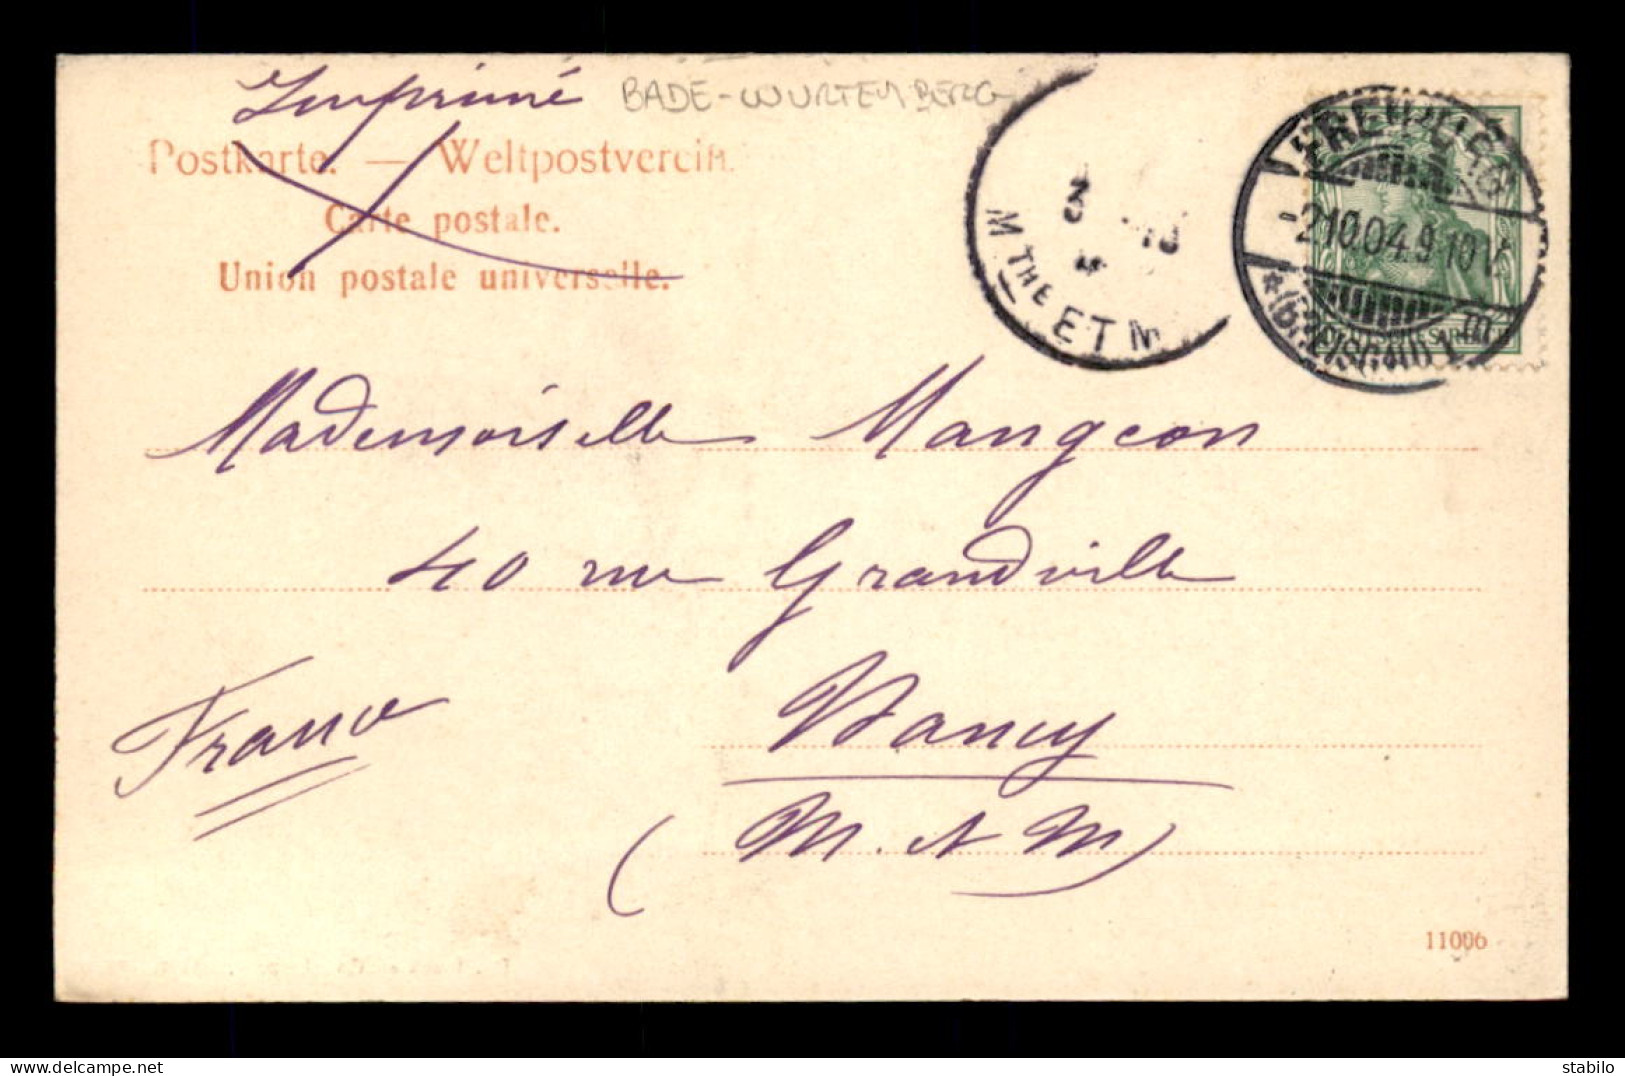 Imprimé
BADE-WURTEMBERG
Postkarte. — Weltpostverein.
Carte postale.
Union postale universelle.
FREIBURG
-2.10.04.9-10V.
*(BREISGAU) 1 m
3 -10
4
M THE ET M
Mademoiselle Mangeon
40 rue Grandville
France
Nancy
(M. et M)
11006
delcampe.net
stabilo